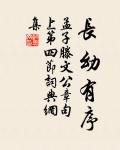 長幼有序
孟子滕文公章句
上第四節詞典網
集